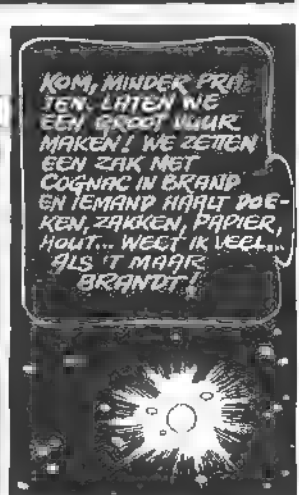 KOM, MINDER PRA-
TEN. LATEN WE
EEN GROOT VUUR
MAKEN! WE ZETTEN
EEN ZAK MET
COGNAC IN BRAND
EN IEMAND HAALT DOE-
KEN, ZAKKEN, PAPIER,
HOUT... WEET IK VEEL...
ALS 'T MAAR
BRANDT!